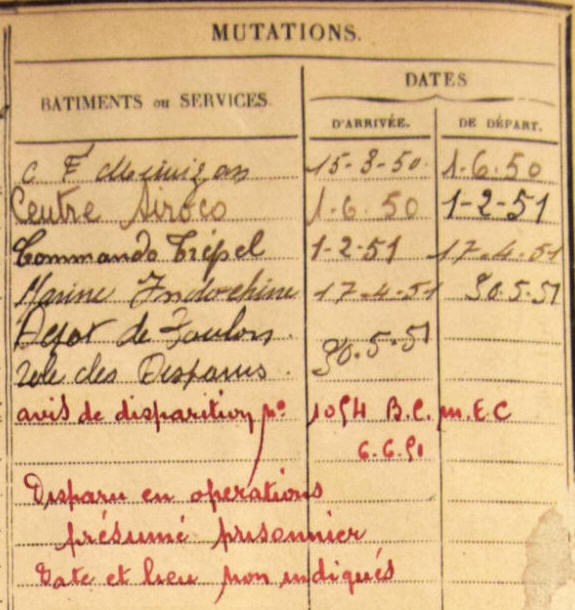 MUTATIONS.
BATIMENTS ou SERVICES.
DATES
D'ARRIVÉE.
DE DÉPART.
C F Mimizan 15-3-50. 1-6-50
Centre Siroco 1-6-50 1-2-51
Commando Trépel 1-2-51 17-4-51
Marine Indochine 17-4-51 30.5.51
Dépot de Toulon.
rôle des Disparus. 30.5.51
avis de disparition nº 1054 B.C.M.EC
6.6.51
Disparu en opérations
présumé prisonnier
Date et lieu non indiqués